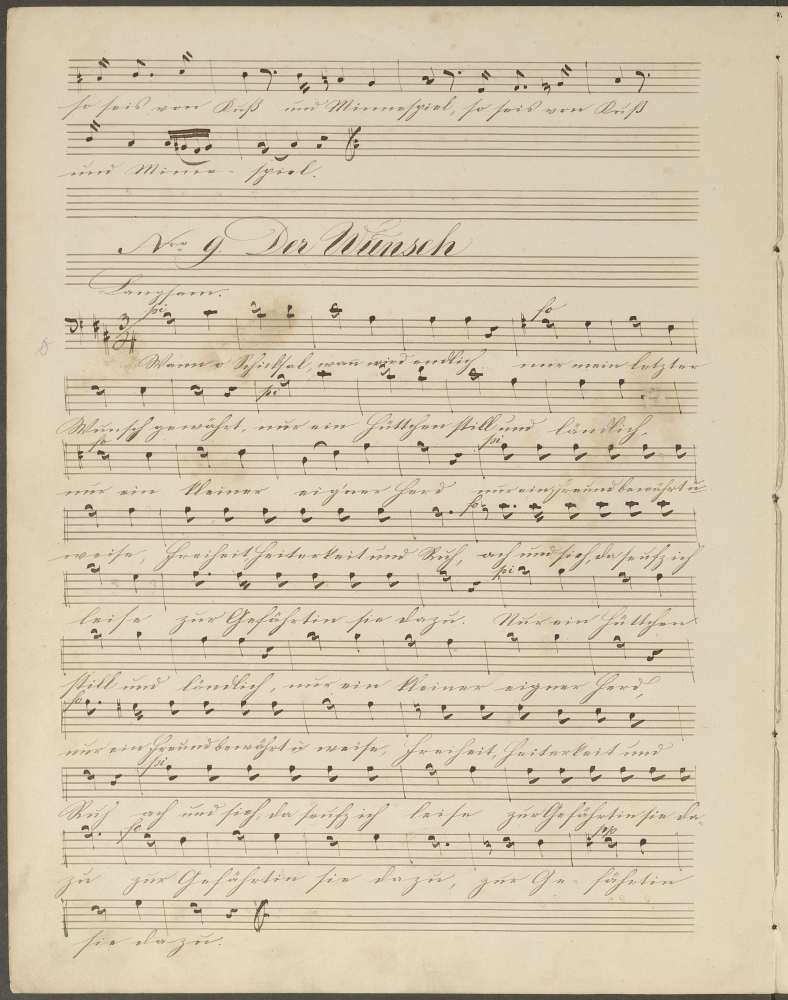 so seis von Kuß und Minnespiel, so seis von Kuß
und Minne- spiel.
Nro 9. Der Wunsch
Langsam.
pi fo
Wann o Schicksal, wan wird endlich mir mein letzter
pi
Wunsch gewährt, nur ein Hüttchen still und ländlich,
fo pi
nur ein kleiner eigner Herd nur ein Freund bewährt u.
fo
weise, Freiheit Heiterkeit und Ruh, ach und sieh, da seufz ich
pi
leise zur Gefährtin sie dazu. Nur ein Hüttchen
still und ländlich, nur ein kleiner eigner Herd,
fo
nur ein Freund bewährt u weise, Freiheit, Heiterkeit und
pi
Ruh ach und sieh, da seufz ich leise zur Gefährtin sie da-
fo
zu zur Gefährtin sie dazu, zur Ge- fährtin
sie dazu.